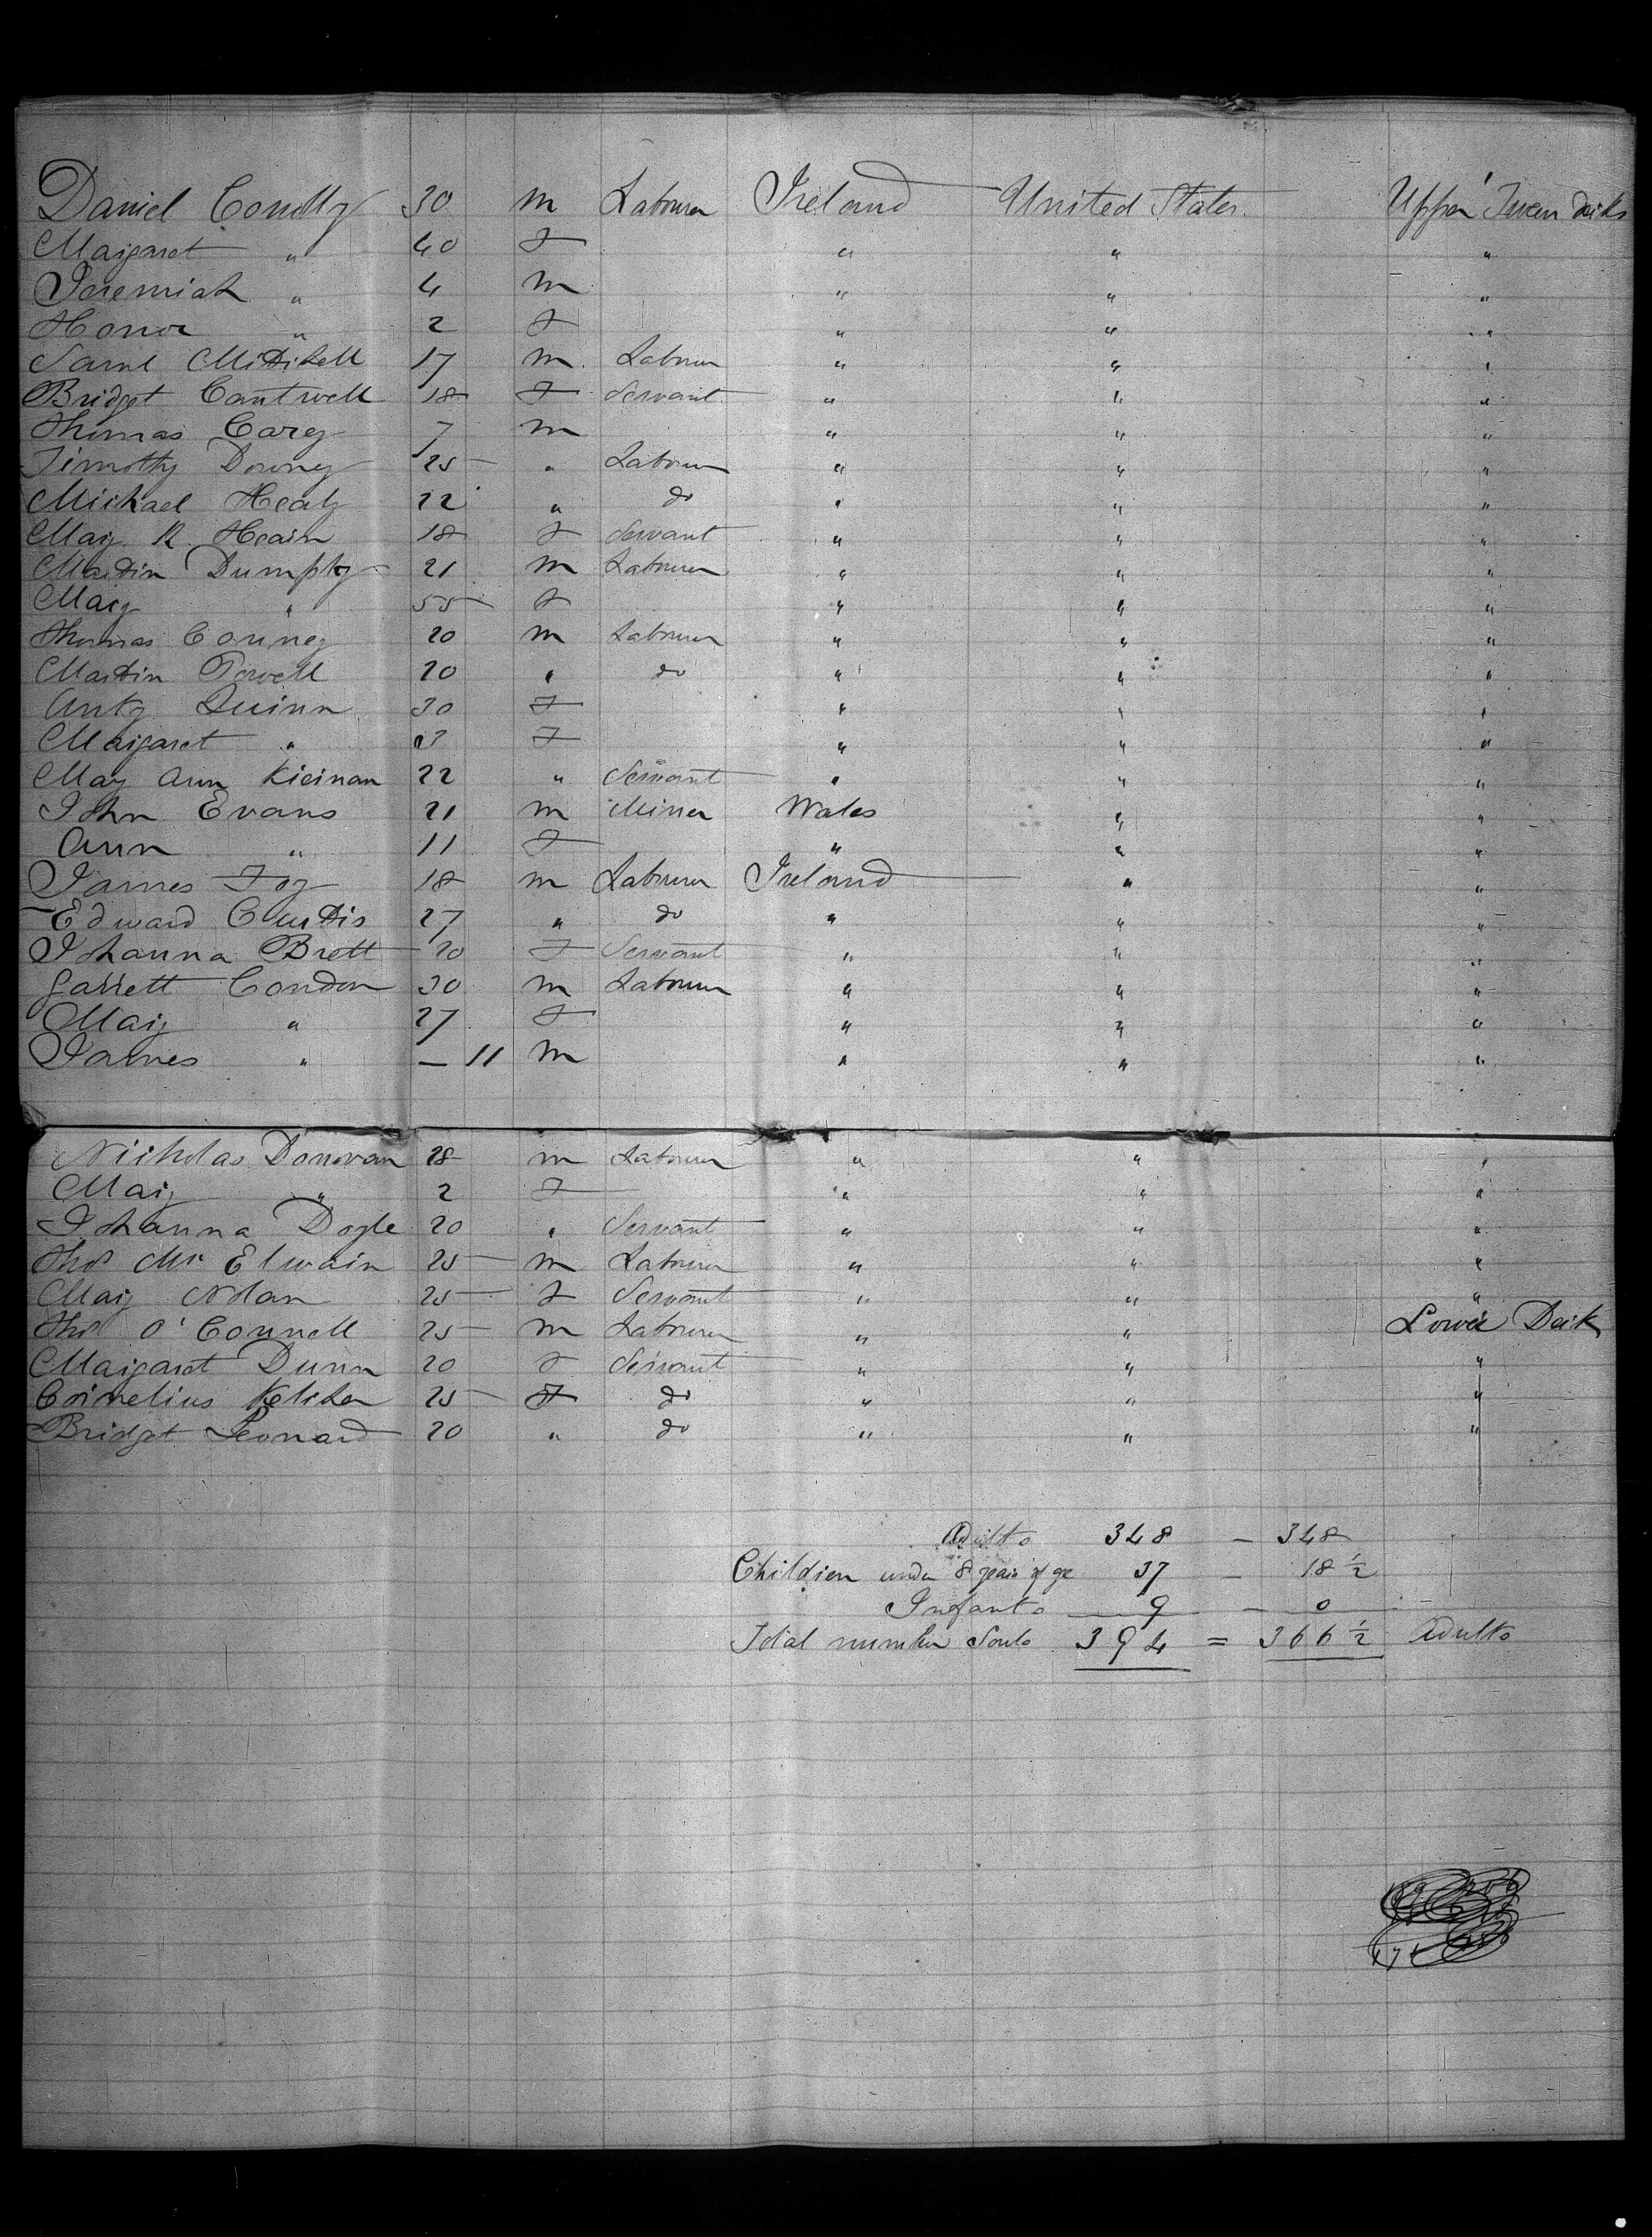 Daniel Conolly 30 m Labourer Ireland United States Upper Tween decks
Margaret " 40 F " " "
Jeremiah " 4 m " " "
Honor " 2 F " " "
Saml Mitchell 17 m Labourer " " "
Bridget Cantwell 18 F Servant " " "
Thomas Carey 7 m " " "
Timothy Downey 25 " Labourer " " "
Michael Healy 22 " do " " "
Mary R. Hearn 18 F Servant " " "
Martin Dumphy 21 m Labourer " " "
Mary " 55 F " " "
Thomas Conney 20 m Labourer " " "
Martin Powell 20 " do " " "
Anty Quinn 30 F " " "
Margaret " 03 F " " "
Mary Ann Kiernan 22 " Servant " " "
John Evans 21 m Miner Wales " "
Ann " 11 F " " "
James Foy 18 m Labourer Ireland " "
Edward Curtis 27 " do " " "
Johanna Brett 20 F Servant " " "
Garrett Condon 30 m Labourer " " "
Mary " 27 F " " "
James " — 11 m " " "
Nicholas Donovan 28 m Labourer " " "
Mary " 2 F " " "
Johanna Doyle 20 " Servant " " "
Thos Mc Elwain 25 m Labourer " " "
Mary Nolan 25 F Servant " " "
Thos O'Connell 25 m Labourer " " Lower Deck
Margaret Dunn 20 F Servant " " "
Cornelius Keliher 25 F do " " "
Bridget Leonard 20 " do " " "
Adults 348 — 348
Children under 8 years of age 37 — 18 1/2
Infants 9 — 0
Total number Souls 394 = 366 1/2 Adults